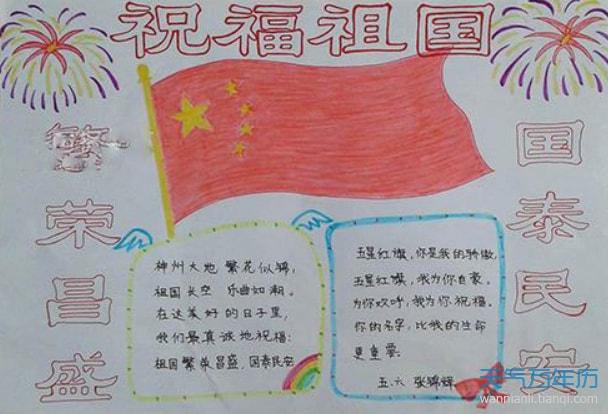 祝福祖国
繁荣昌盛
国泰民安
神州大地 繁花似锦，
祖国长空 乐曲如潮。
在这美好的日子里，
我们最真诚地祝福：
祖国繁荣昌盛，国泰民安
五星红旗，你是我的骄傲，
五星红旗，我为你自豪。
为你欢呼，我为你祝福，
你的名字，比我的生命
更重要
五.六 张锦辉
天气万年历
wannianli.tianqi.com